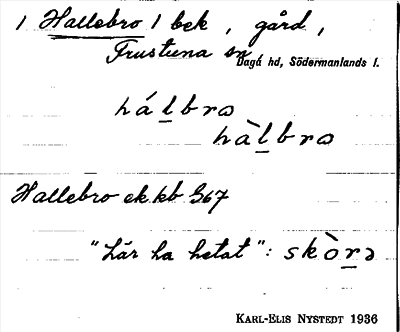 1 Hallebro 1 bek , gård ,
Trustuna sn
Daga hd, Södermanlands l.
hálbrɷ
hàlbrɷ
Hallebro ek kb 967
"Lär ha hetat": skòrə
KARL-ELIS NYSTEDT 1936